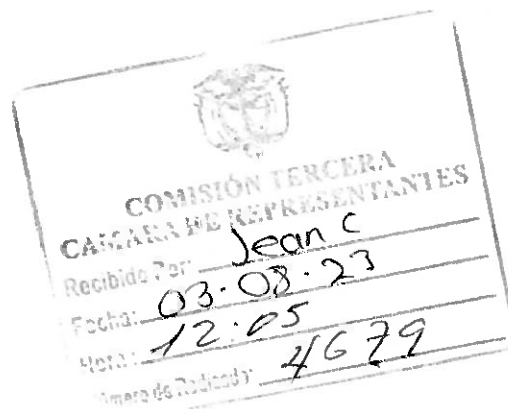 COMISIÓN TERCERA
CAMARA DE REPRESENTANTES
Recibido Por: Jean C
Fecha: 03-08-23
Hora: 12:05
Numero de Radicado: 4679